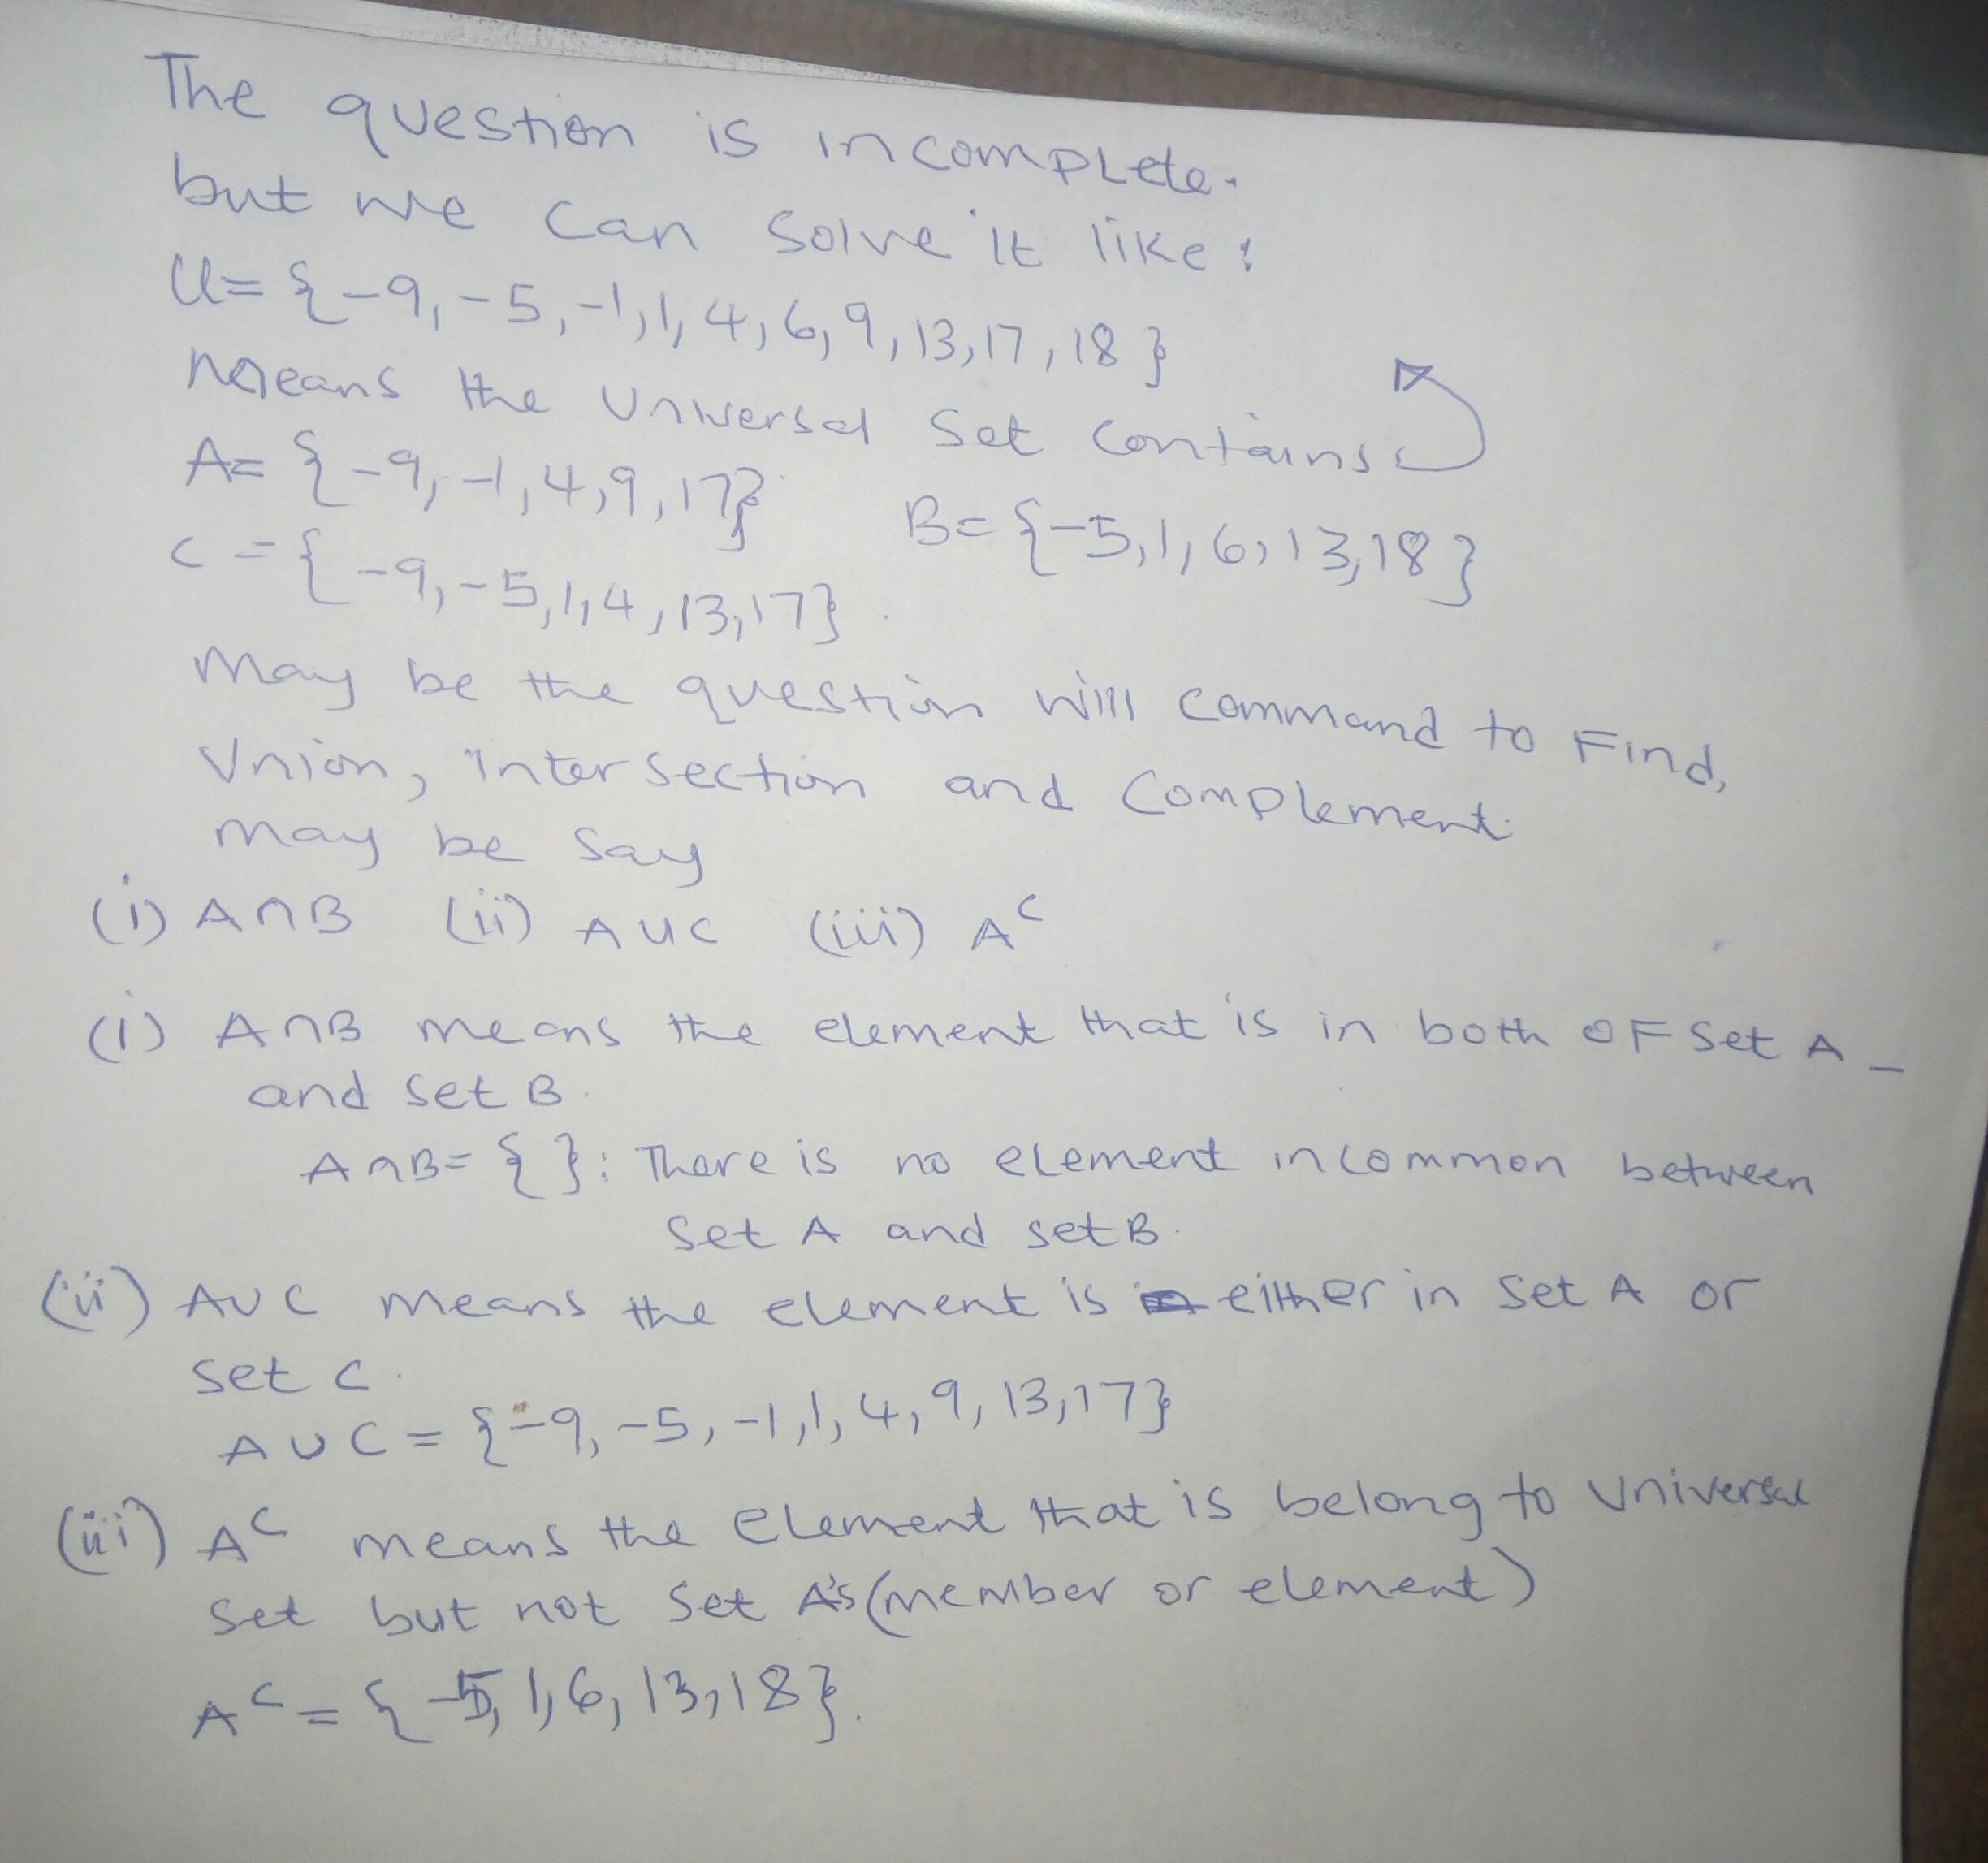 The question is incomplete.
but we can solve it like:
U= {-9, -5, -1, 1, 4, 6, 9, 13, 17, 18}
means the universal set contains
A= {-9, -1, 4, 9, 17} B= {-5, 1, 6, 13, 18}
C = {-9, -5, 1, 4, 13, 17}
May be the question will command to Find,
Union, intersection and Complement.
may be say
(i) A∩B (ii) A∪C (iii) Aᶜ
(i) A∩B means the element that is in both of set A _
and set B.
A∩B= { }: There is no element in common between
Set A and set B.
(ii) A∪C means the element is either in set A or
set C.
A∪C = {-9, -5, -1, 1, 4, 9, 13, 17}
(iii) Aᶜ means the element that is belong to universal
set but not set A's (member or element)
Aᶜ = {-5, 1, 6, 13, 18}.